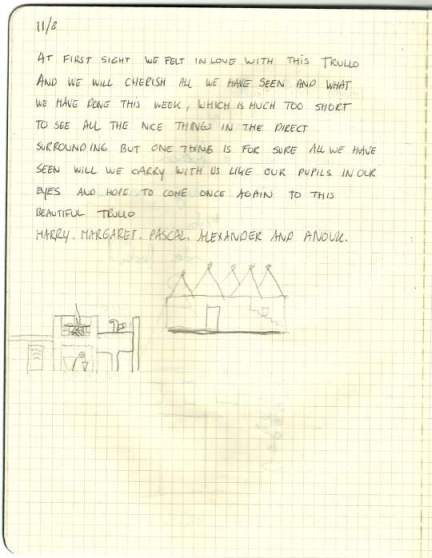 11/8
AT FIRST SIGHT WE FELT IN LOVE WITH THIS TRULLO
AND WE WILL CHERISH ALL WE HAVE SEEN AND WHAT
WE HAVE DONE THIS WEEK, WHICH IS MUCH TOO SHORT
TO SEE ALL THE NICE THINGS IN THE DIRECT
SURROUNDING BUT ONE THING IS FOR SURE ALL WE HAVE
SEEN WILL WE CARRY WITH US LIKE OUR PUPILS IN OUR
EYES AND HOPE TO COME ONCE AGAIN TO THIS
BEAUTIFUL TRULLO
HARRY. MARGARET. PASCAL. ALEXANDER AND ANOUK.